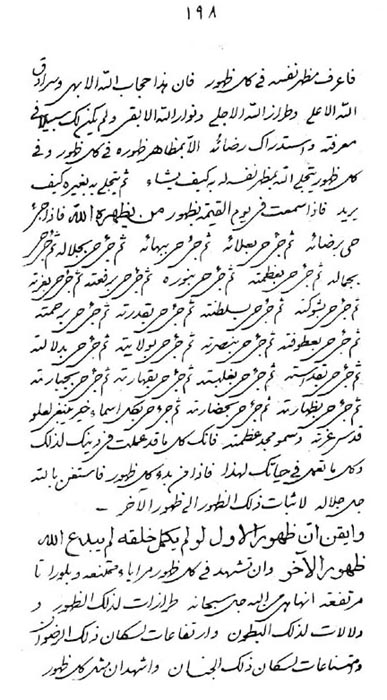 ١٩٨
فاعرف مظهر نفسه فی کل ظهور فان هذا حجاب الله الابهی وسرادق
الله الاعلی وطراز الله الاجلی ونوار الله الابقی ولم یکن لک سبیلا فی
معرفته واستدراک رضائه الا بمظاهر ظهوره فی کل ظهور وفی
کل ظهور یتجلی الله بمظهر نفسه له به کیف یشاء ثم یتجلی به بغیره کیف
یرید فاذا سمعت فی یوم القیمة بظهور من یظهره الله فاذا
رضائه ثم بعلائه ثم ببهائه ثم بجلاله ثم
بجماله ثم بعظمته ثم بنوره ثم برفعته ثم بعزته
ثم بشوکته ثم بسلطنته ثم بقدرته ثم برحمته
ثم بعطوفته ثم بنصرته ثم بولایته ثم بدلالته
ثم ثم بغلبته ثم بقهارته ثم بجبارته
ثم بظهارته ثم ثم بکل اسماء خیر لعلو
قدس عزته وسمو مجد عظمته فانک کل ما قد عملت فی دینک لذلک
وکل ما تعمل فی حیاتک لهذا فاذا فی بدء کل ظهور فاستعن بالله
جل جلاله لاثبات ذلک الظهور الی ظهور الآخر
وایقن ان ظهور الاول لو لم یکمل خلقه لم یبدع الله
ظهور الآخر وان تشهد فی کل ظهور مرایاء ممتنعه وبلورا تا
مرتفعة انها هی من الله جل سبحانه طرازات لذلک الظهور و
دلالات لذلک البطون وارتفاعات لسکان ذلک الرضوان
وامتناعات لسکان ذلک الجنان واشهد ان مثل کل ظهور